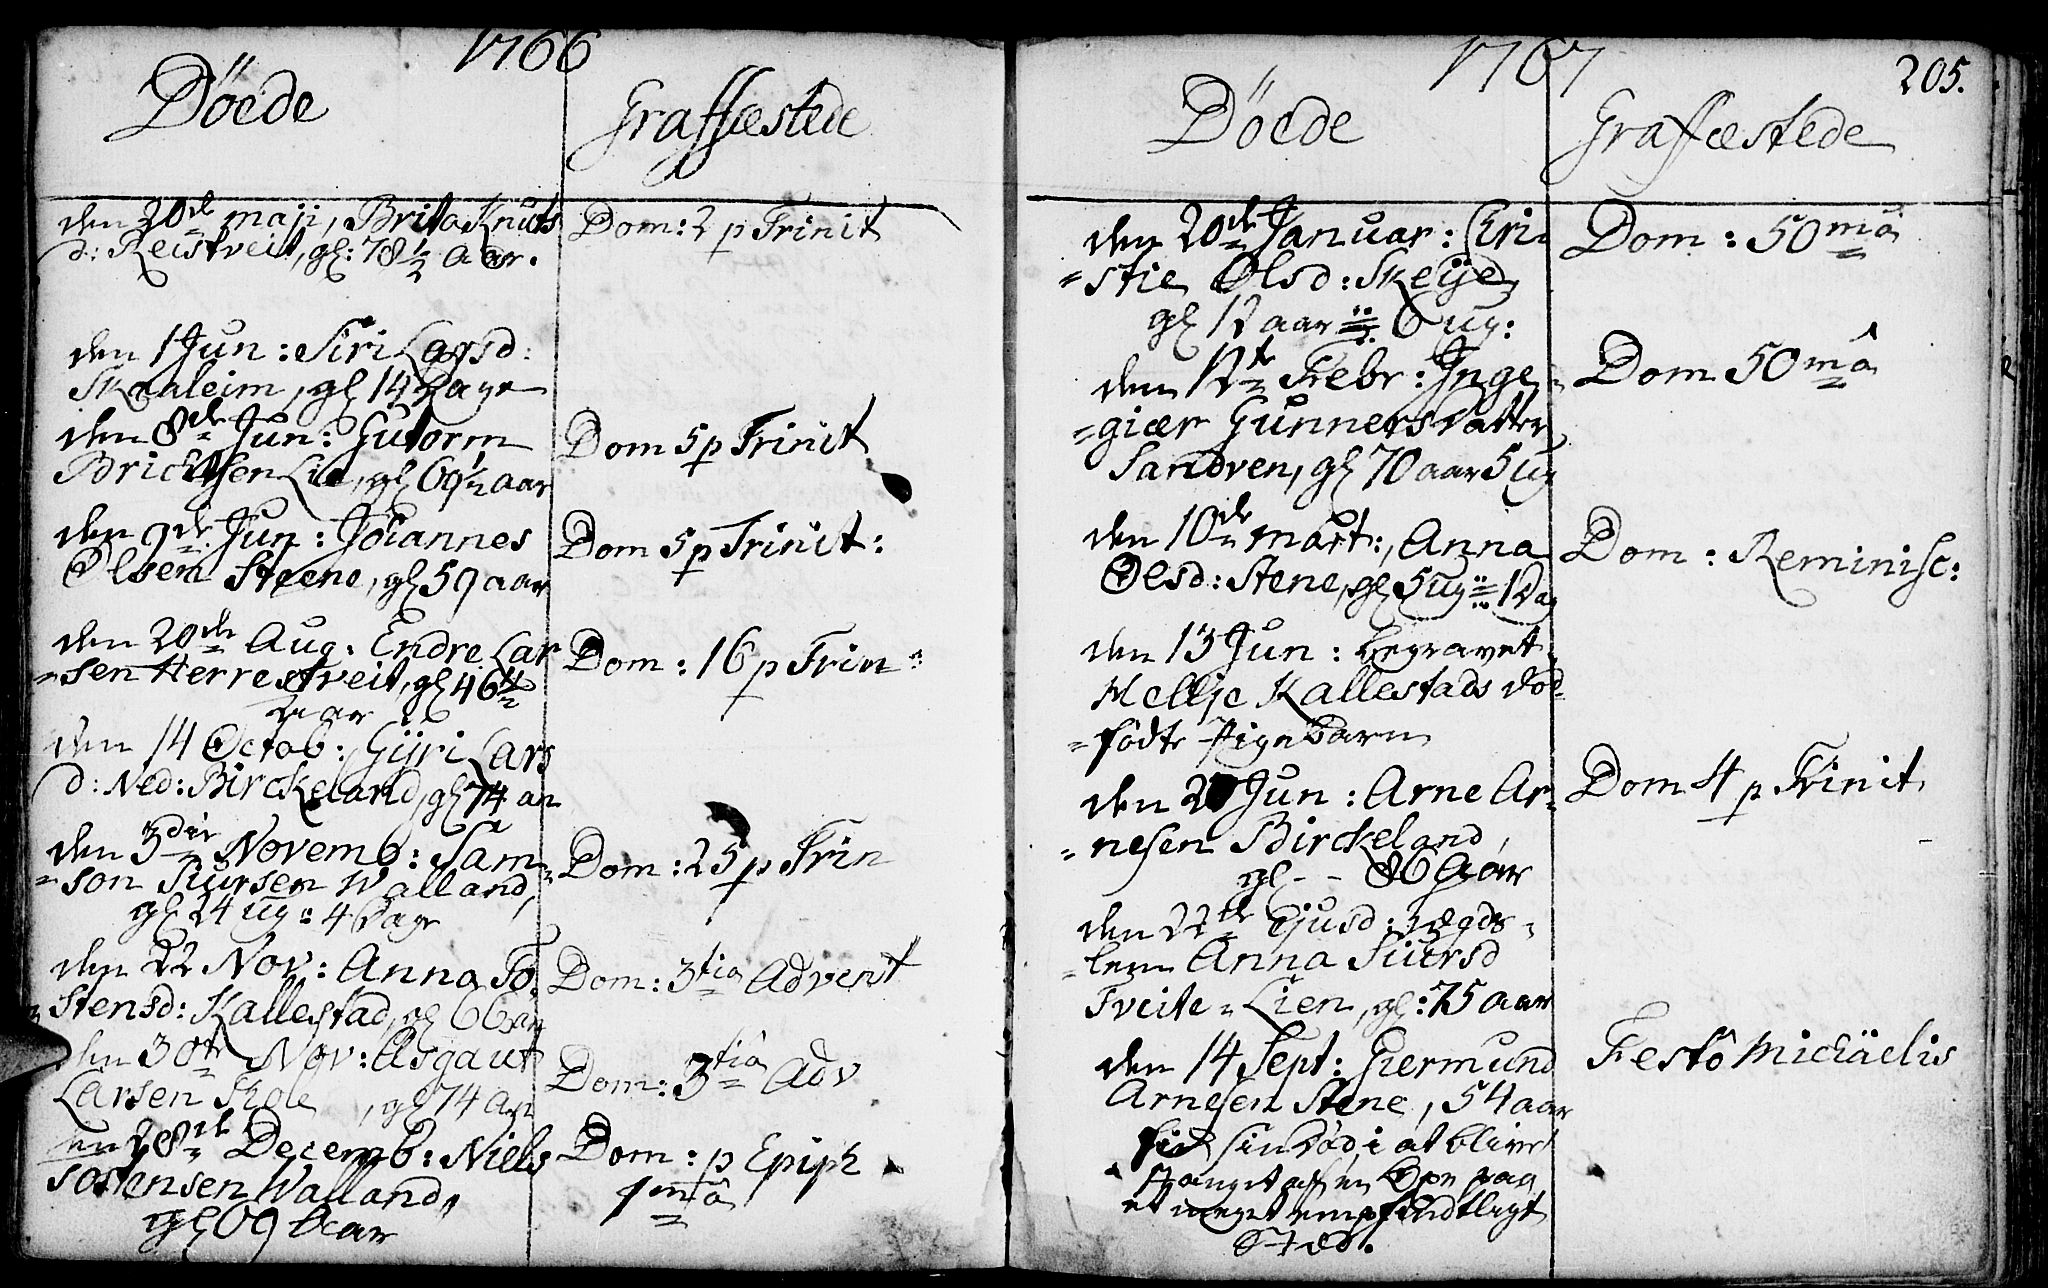 1766
Döede
Graffæstede
den 20de maji, Brita Knuts
d: Reistveit, gl: 78 1/2 Aar.
Dom: 2 p Trinit
den 1 Jun: Siri Larsd:
Skaaleim, gl 14 Dage
den 8de Jun: Gutorm
Brichsen Lie, gl 69 1/2 aar
Dom 5 p Trinit
den 9de Jun: Johannes
Olsen Steene, gl 59 aar
Dom 5 p Trinit:
den 20de Aug: Endre Lar
=sen Herrestveit, gl 46
aar
Dom: 16 p Trin:
den 14 Octob: Gijri Lars
d: Ned: Birckeland, gl 74 aar
den 3die Novemb: Sam=
=son Siursen Walland,
gl 24 ug: 4 Dage
Dom: 25 p Trin
den 22 Nov: Anna To
stensd: Kallestad, gl 66 aar
Dom: 3tia Advent
den 30te Nov: Asgaut
Larsen Skole, gl 74 Aar
Dom: 3tia Adv
en 28de Decemb: Niels
Sostensen Walland,
gl 69 Aar
Dom: p Epiph
1mâ
1767
205.
Döede
Graffæstede
den 20de Januar: Chri
=stie Olsd: Skeije,
gl 12 aar 6 ug:
Dom: 50mâ
den 12te Febr: Inge=
=giær Gunners datter
Sandven, gl 70 aar 5 ug
Dom 50mâ
den 10de mart:, Anna
Olsd: Stene, gl 5 ug 1 Dag
Dom: Reminisc:
den 13 Jun: begravet
Mellje Kallestads död=
=födte Pigebarn
den 2 Jun: Arne Ar=
=nesen Birckeland,
gl - - 86 Aar
Dom 4 p Trinit
den 22de Ejusd: Lægds=
=lem Anna Siursd
Tveite=Lien, gl: 75 aar
den 14 Sept: Giermund
Arnesen Stene, 54 aar
fik sin Död, i at blive
stanget af en
et meget empfindtligt
Stæd.
Festô Michäelis